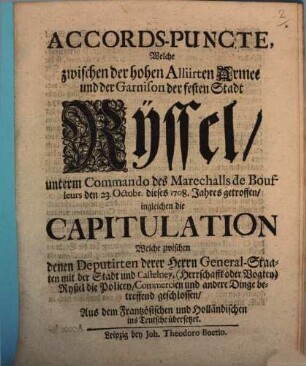 2
ACCORDS-PUNCTE,
Welche
zwischen der hohen Alliirten Armee
und der Garnison der festen Stadt
Ryssel/
unterm Commando des Marechalls de Bouf-
leurs den 23. Octobr. dieses 1708. Jahres getroffen/
ingleichen die
CAPITULATION
Welche zwischen
denen Deputirten derer Herrn General-Staa-
ten mit der Stadt und Castelney, (Herrschafft oder Vogtey)
Ryssel die Policey, Commercien und andere Dinge be-
treffend geschlossen/
Aus dem Frantzösischen und Holländischen
ins Teutsche übersetzet.
Leipzig bey Joh. Theodoro Boetio.